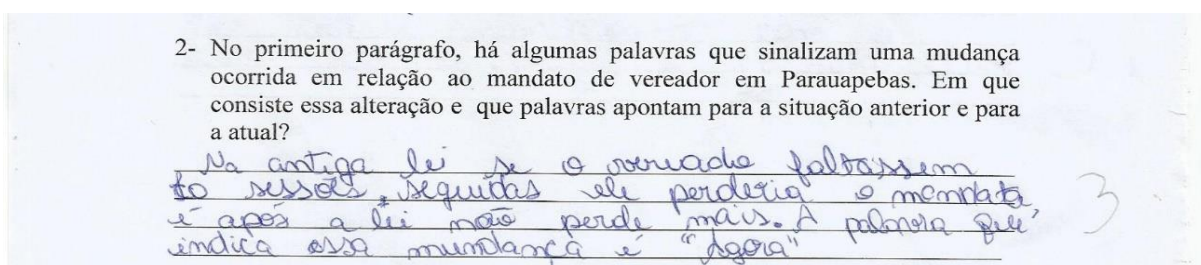 2- No primeiro parágrafo, há algumas palavras que sinalizam uma mudança
ocorrida em relação ao mandato de vereador em Parauapebas. Em que
consiste essa alteração e que palavras apontam para a situação anterior e para
a atual?
Na antiga lei se o vereado faltassem
sessões, seguidas ele perderia o memdata
é após a lei não perde mais. A palavra que
indica essa mundança é "Agora"
3